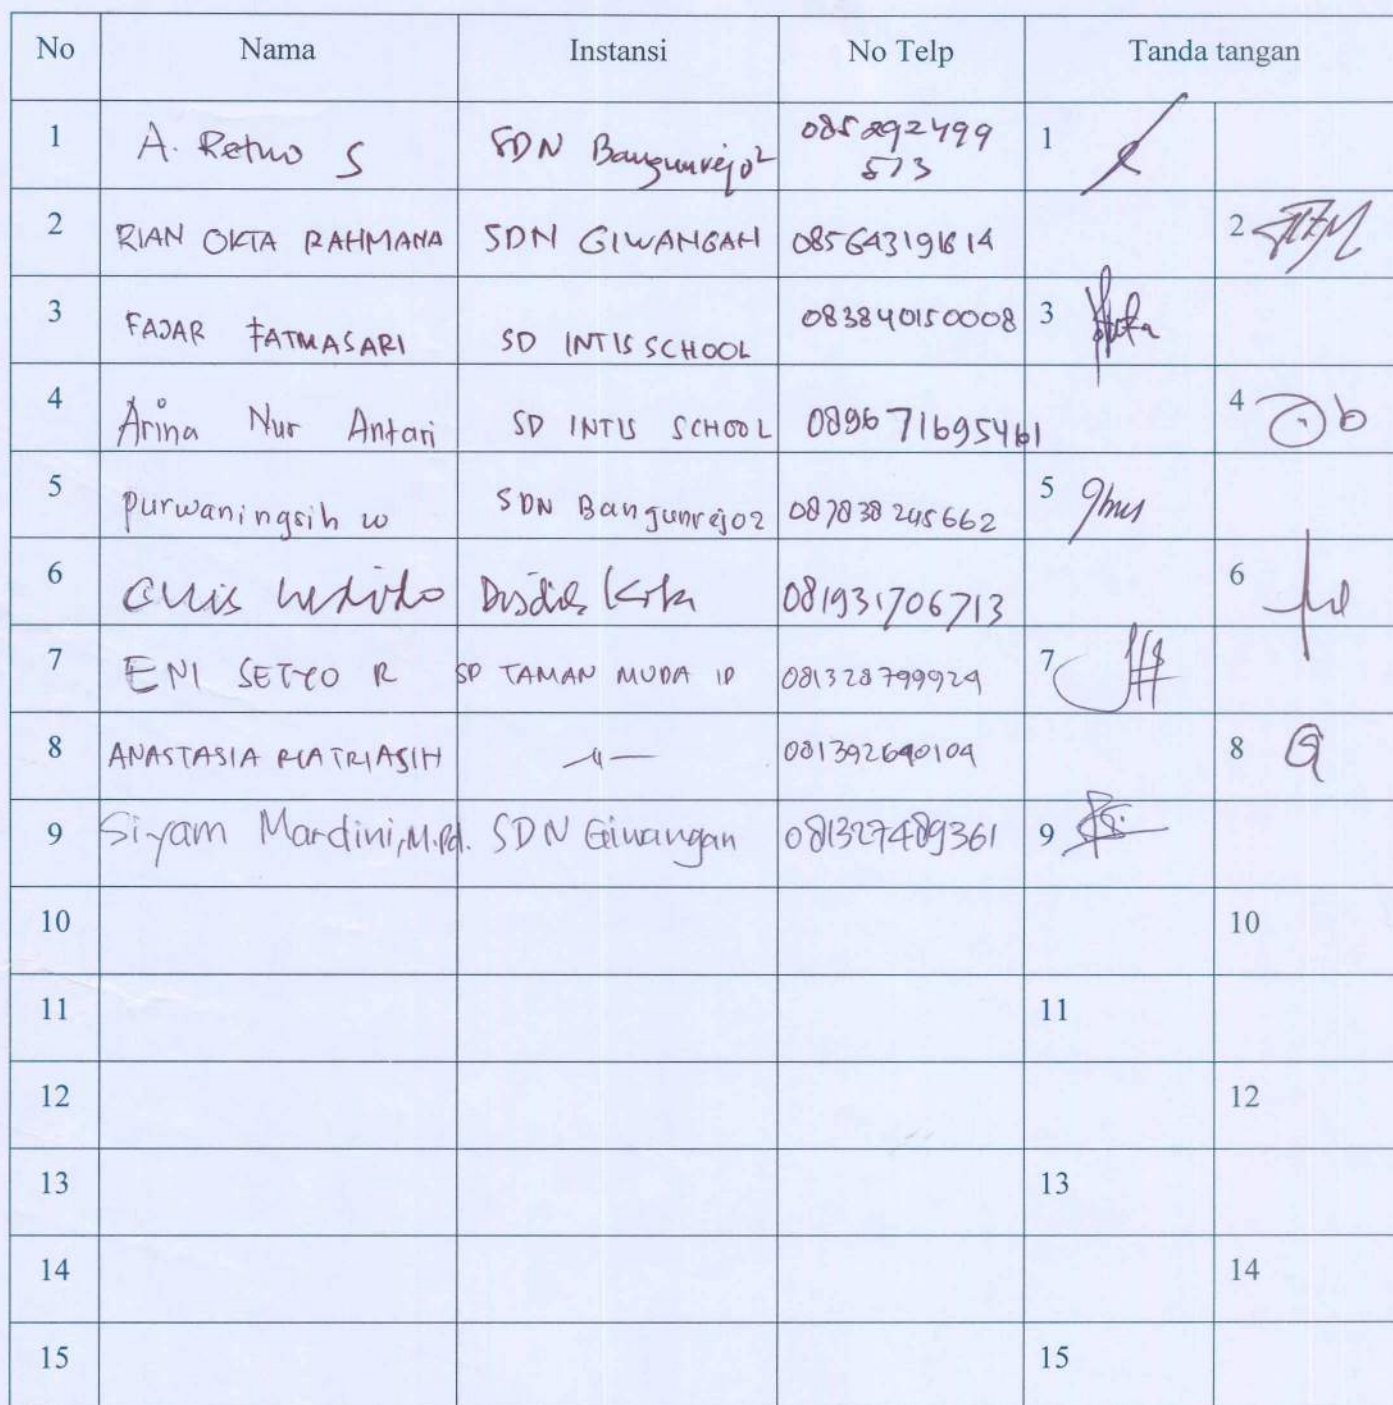 No Nama Instansi No Telp Tanda tangan
1 A. Retno S SDN Bangunrejo 2 085292499 1
573
2 RIAN OKTA RAHMANA SDN GIWANGAN 085643191614 2
3 FAJAR FATMASARI SD INTIS SCHOOL 083840150008 3
4 Arina Nur Antari SD INTIS SCHOOL 089671695461 4
5 purwaningsih w SDN Bangunrejo2 087838245662 5
6 Kota 081931706713 6
7 ENI SETYO R SD TAMAN MUDA IP 081328799929 7
8 ANASTASIA RIATRIASIH -〃- 081392690104 8
9 Siyam Mardini, M.Pd. SDN Giwangan 081327489361 9
10 10
11 11
12 12
13 13
14 14
15 15